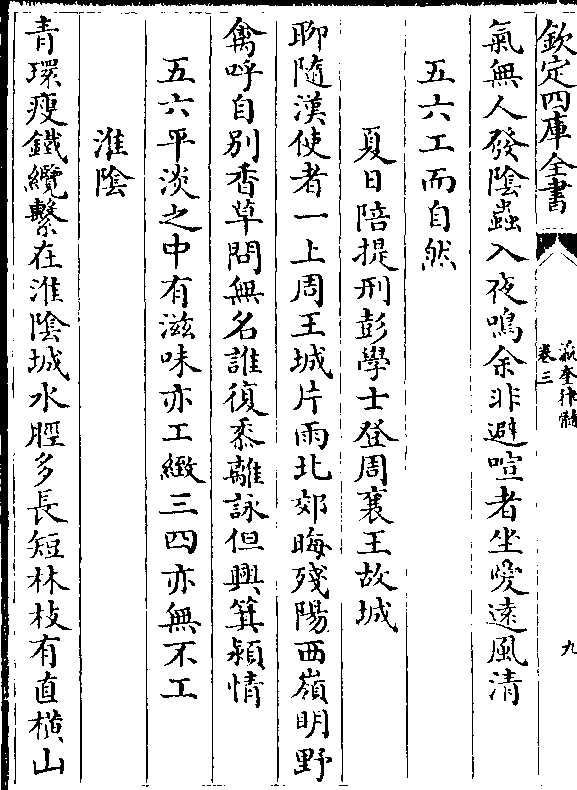 欽定四庫全書
瀛奎律髓
卷三
九
氣無人發陰蟲入夜鳴余非避喧者坐愛遠風清
五六工而自然
夏日陪提刑彭學士登周襄王故城
聊隨漢使者一上周王城片雨北郊晦殘陽西嶺明野
禽呼自別香草問無名誰復黍離詠但興箕潁情
五六平淡之中有滋味亦工緻三四亦無不工
淮陰
青環瘦鐵纜繫在淮陰城水脛多長短林枝有直橫山